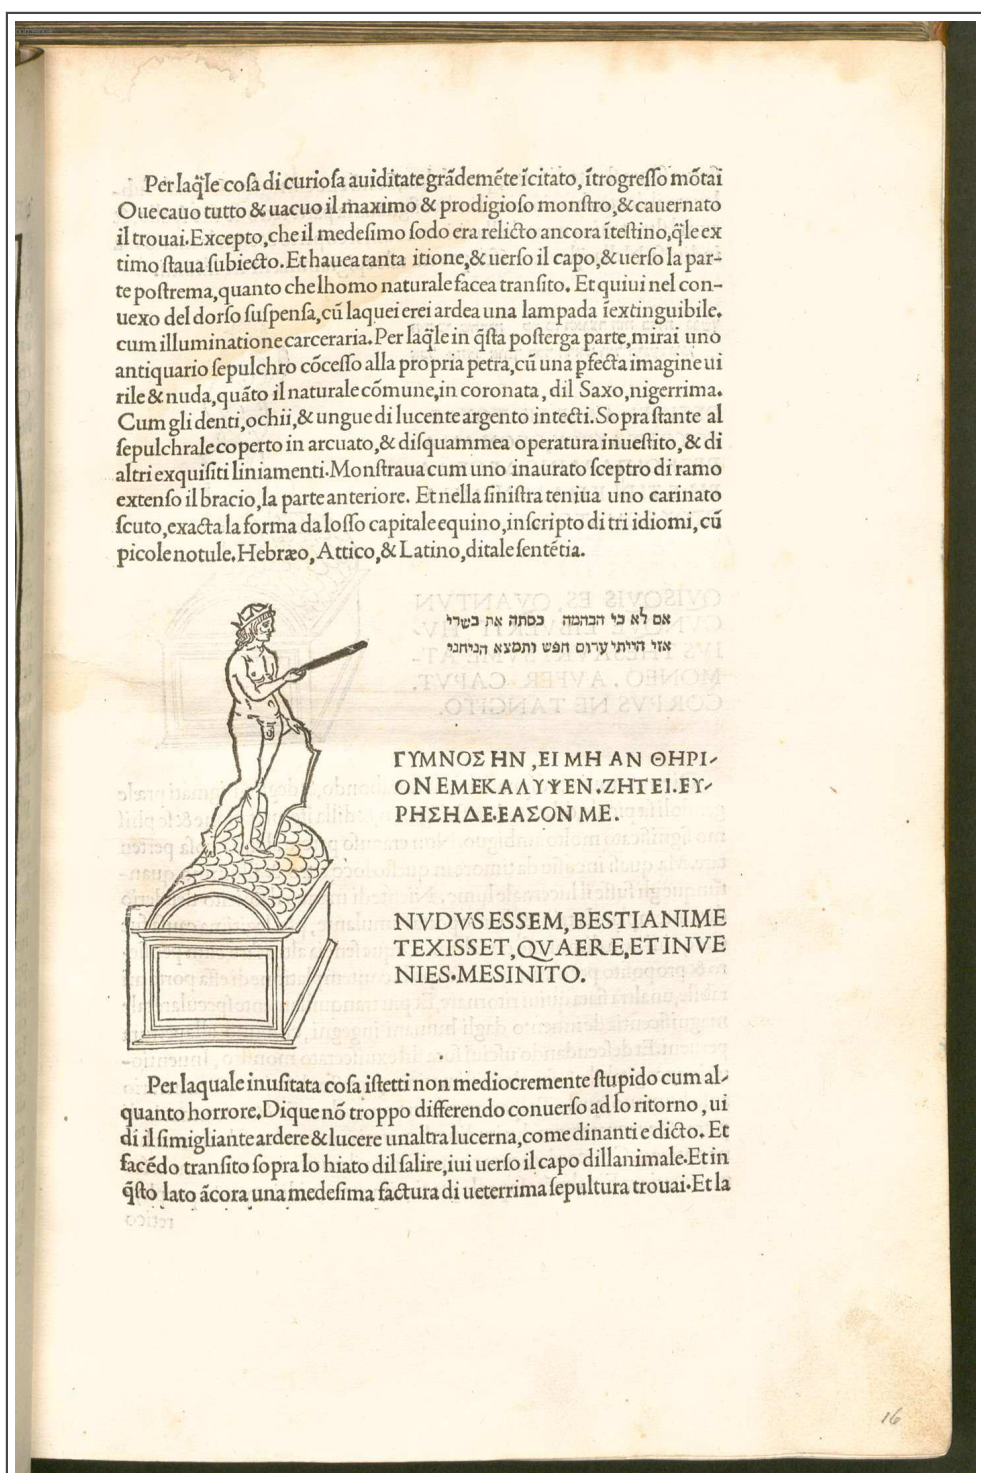 Per laq̃le coſa di curioſa auiditate grãdemẽte ĩcitato, ĩtrogreſſo mõtai
Oue cauo tutto & uacuo il maximo & prodigioſo monſtro, & cauernato
il trouai. Excepto, che il medeſimo ſodo era relicto ancora ĩteſtino, q̃le ex
timo ſtaua ſubiecto. Et hauea tanta itione, & uerſo il capo, & uerſo la par-
te poſtrema, quanto che lhomo naturale facea tranſito. Et quiui nel con-
uexo del dorſo ſuſpenſa, cũ laquei erei ardea una lampada ĩextinguibile.
cum illuminatione carceraria. Per laq̃le in q̃ſta poſterga parte, mirai uno
antiquario ſepulchro cõceſſo alla propria petra, cũ una ꝑfecta imagine ui
rile & nuda, quãto il naturale cõmune, in coronata, dil Saxo, nigerrima.
Cum gli denti, ochii, & ungue di lucente argento intecti. Sopra ſtante al
ſepulchrale coperto in arcuato, & diſquammea operatura inueſtito, & di
altri exquiſiti liniamenti. Monſtraua cum uno inaurato ſceptro di ramo
extenſo il bracio, la parte anteriore. Et nella ſiniſtra teniua uno carinato
ſcuto, exacta la forma da loſſo capitale equino, inſcripto di tri idiomi, cũ
picole notule. Hebræo, Attico, & Latino, ditale ſentẽtia.
אם לא כי הבהמה כסתה את בשרי
אזי הייתי ערום חפש ותמצא הניחני
ΓΥΜΝΟΣ ΗΝ, ΕΙ ΜΗ ΑΝ ΘΗΡΙ-
ΟΝ ΕΜΕΚΑΛΥΨΕΝ. ΖΗΤΕΙ. ΕΥ-
ΡΗΣΗ ΔΕ. ΕΑΣΟΝ ΜΕ.
NVDVS ESSEM, BESTIA NI ME
TEXISSET, QVAERE, ET INVE
NIES. ME SINITO.
Per laquale inuſitata coſa iſtetti non mediocremente ſtupido cum al-
quanto horrore. Dique nõ troppo differendo conuerſo ad lo ritorno, ui
di il ſimigliante ardere & lucere unaltra lucerna, come dinanti e dicto. Et
facẽdo tranſito ſopra lo hiato dil ſalire, iui uerſo il capo dillanimale. Et in
q̃ſto lato ãcora una medeſima factura di ueterrima ſepultura trouai. Et la
16